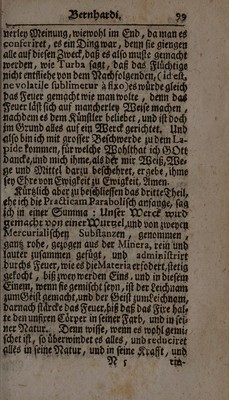 Bernhardi. 99
nerley Meinung, wiewohl im End, da man es
conferiret, es ein Ding war, denn sie giengen
alle auf diesen Zweck, daß es also muste gemacht
werden, wie Turba sagt, daß das Flüchtige
nicht entfliehe von dem Nachfolgenden, (id est,
ne volatile sublimetur à fixo) es würde gleich
das Feuer gemacht wie man wolte, denn das
Feuer läst sich auf mancherley Weise machen,
nachdem es dem Künstler beliebet, und ist doch
im Grund alles auf ein Werck gerichtet. Und
also bin ich mit grosser Beschwerde zu dem La-
pide kommen, für welche Wohlthat ich GOtt
dancke, und mich ihme, als der mir Weiß, We-
ge und Mittel darzu beschehret, ergebe, ihme
sey Ehre von Ewigkeit zu Ewigkeit, Amen.
Kürtzlich aber zu beschliessen das dritte Theil,
ehe ich die Practicam Parabolisch anfange, sag
ich in einer Summa: Unser Werck wird
gemacht von einer Wurtzel, und von zweyen
Mercurialischen Substanzen, genommen,
gantz rohe, gezogen aus der Minera, rein und
lauter zusammen gefügt, und administrirt
durchs Feuer, wie es die Materia erfodert, stetig
gekocht, biß zwey werden Eins, und in diesem
Einem, wenn sie gemischt seyn, ist der Leichnam
zum Geist gemacht, und der Geist zum Leichnam,
darnach stärcke das Feuer, biß daß das Fixe hal-
te den unfixen Cörper in seiner Farb, und in sei-
ner Natur. Denn wisse, wenn es wohl gemi-
schet ist, so überwindet es alles, und reduciret
alles in seine Natur, und in seine Krafft, und
N 5